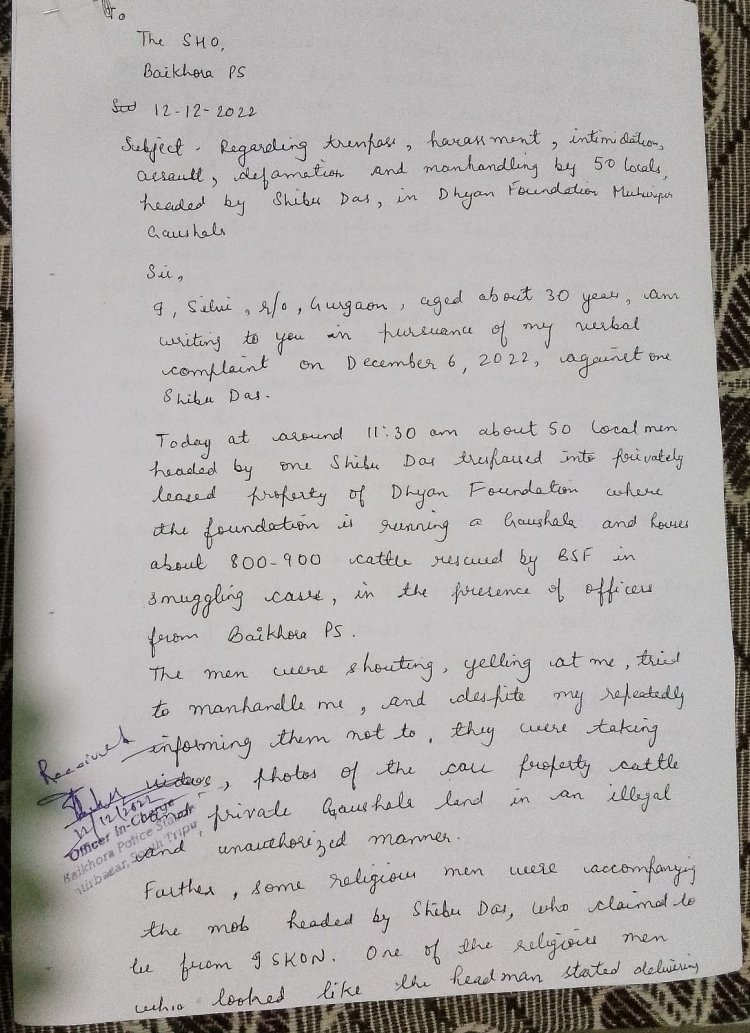 To
The SHO,
Baikhora PS
12-12-2022
Subject - Regarding trespass, harassment, intimidation,
assault, defamation and manhandling by 50 locals,
headed by Shibu Das, in Dhyan Foundation Muhuripur
Gaushala
Sir,
I, Silvi, r/o, Gurgaon, aged about 30 years, am
writing to you in pursuance of my verbal
complaint on December 6, 2022, against one
Shibu Das.
Today at around 11:30 am about 50 local men
headed by one Shibu Das trespassed into privately
leased property of Dhyan Foundation where
the foundation is running a Gaushala and houses
about 800-900 cattle rescued by BSF in
smuggling cases, in the presence of officers
from Baikhora PS.
The men were shouting, yelling at me, tried
to manhandle me, and despite my repeatedly
informing them not to, they were taking
videos, photos of the case property cattle
and private Gaushala land in an illegal
and unauthorized manner.
Received
12/12/2022
Officer In-Charge
Baikhora Police Station
Santirbazar, South Tripura
Further, some religious men were accompanying
the mob headed by Shibu Das, who claimed to
be from ISKON. One of the religious men
who looked like the headman stated delivering